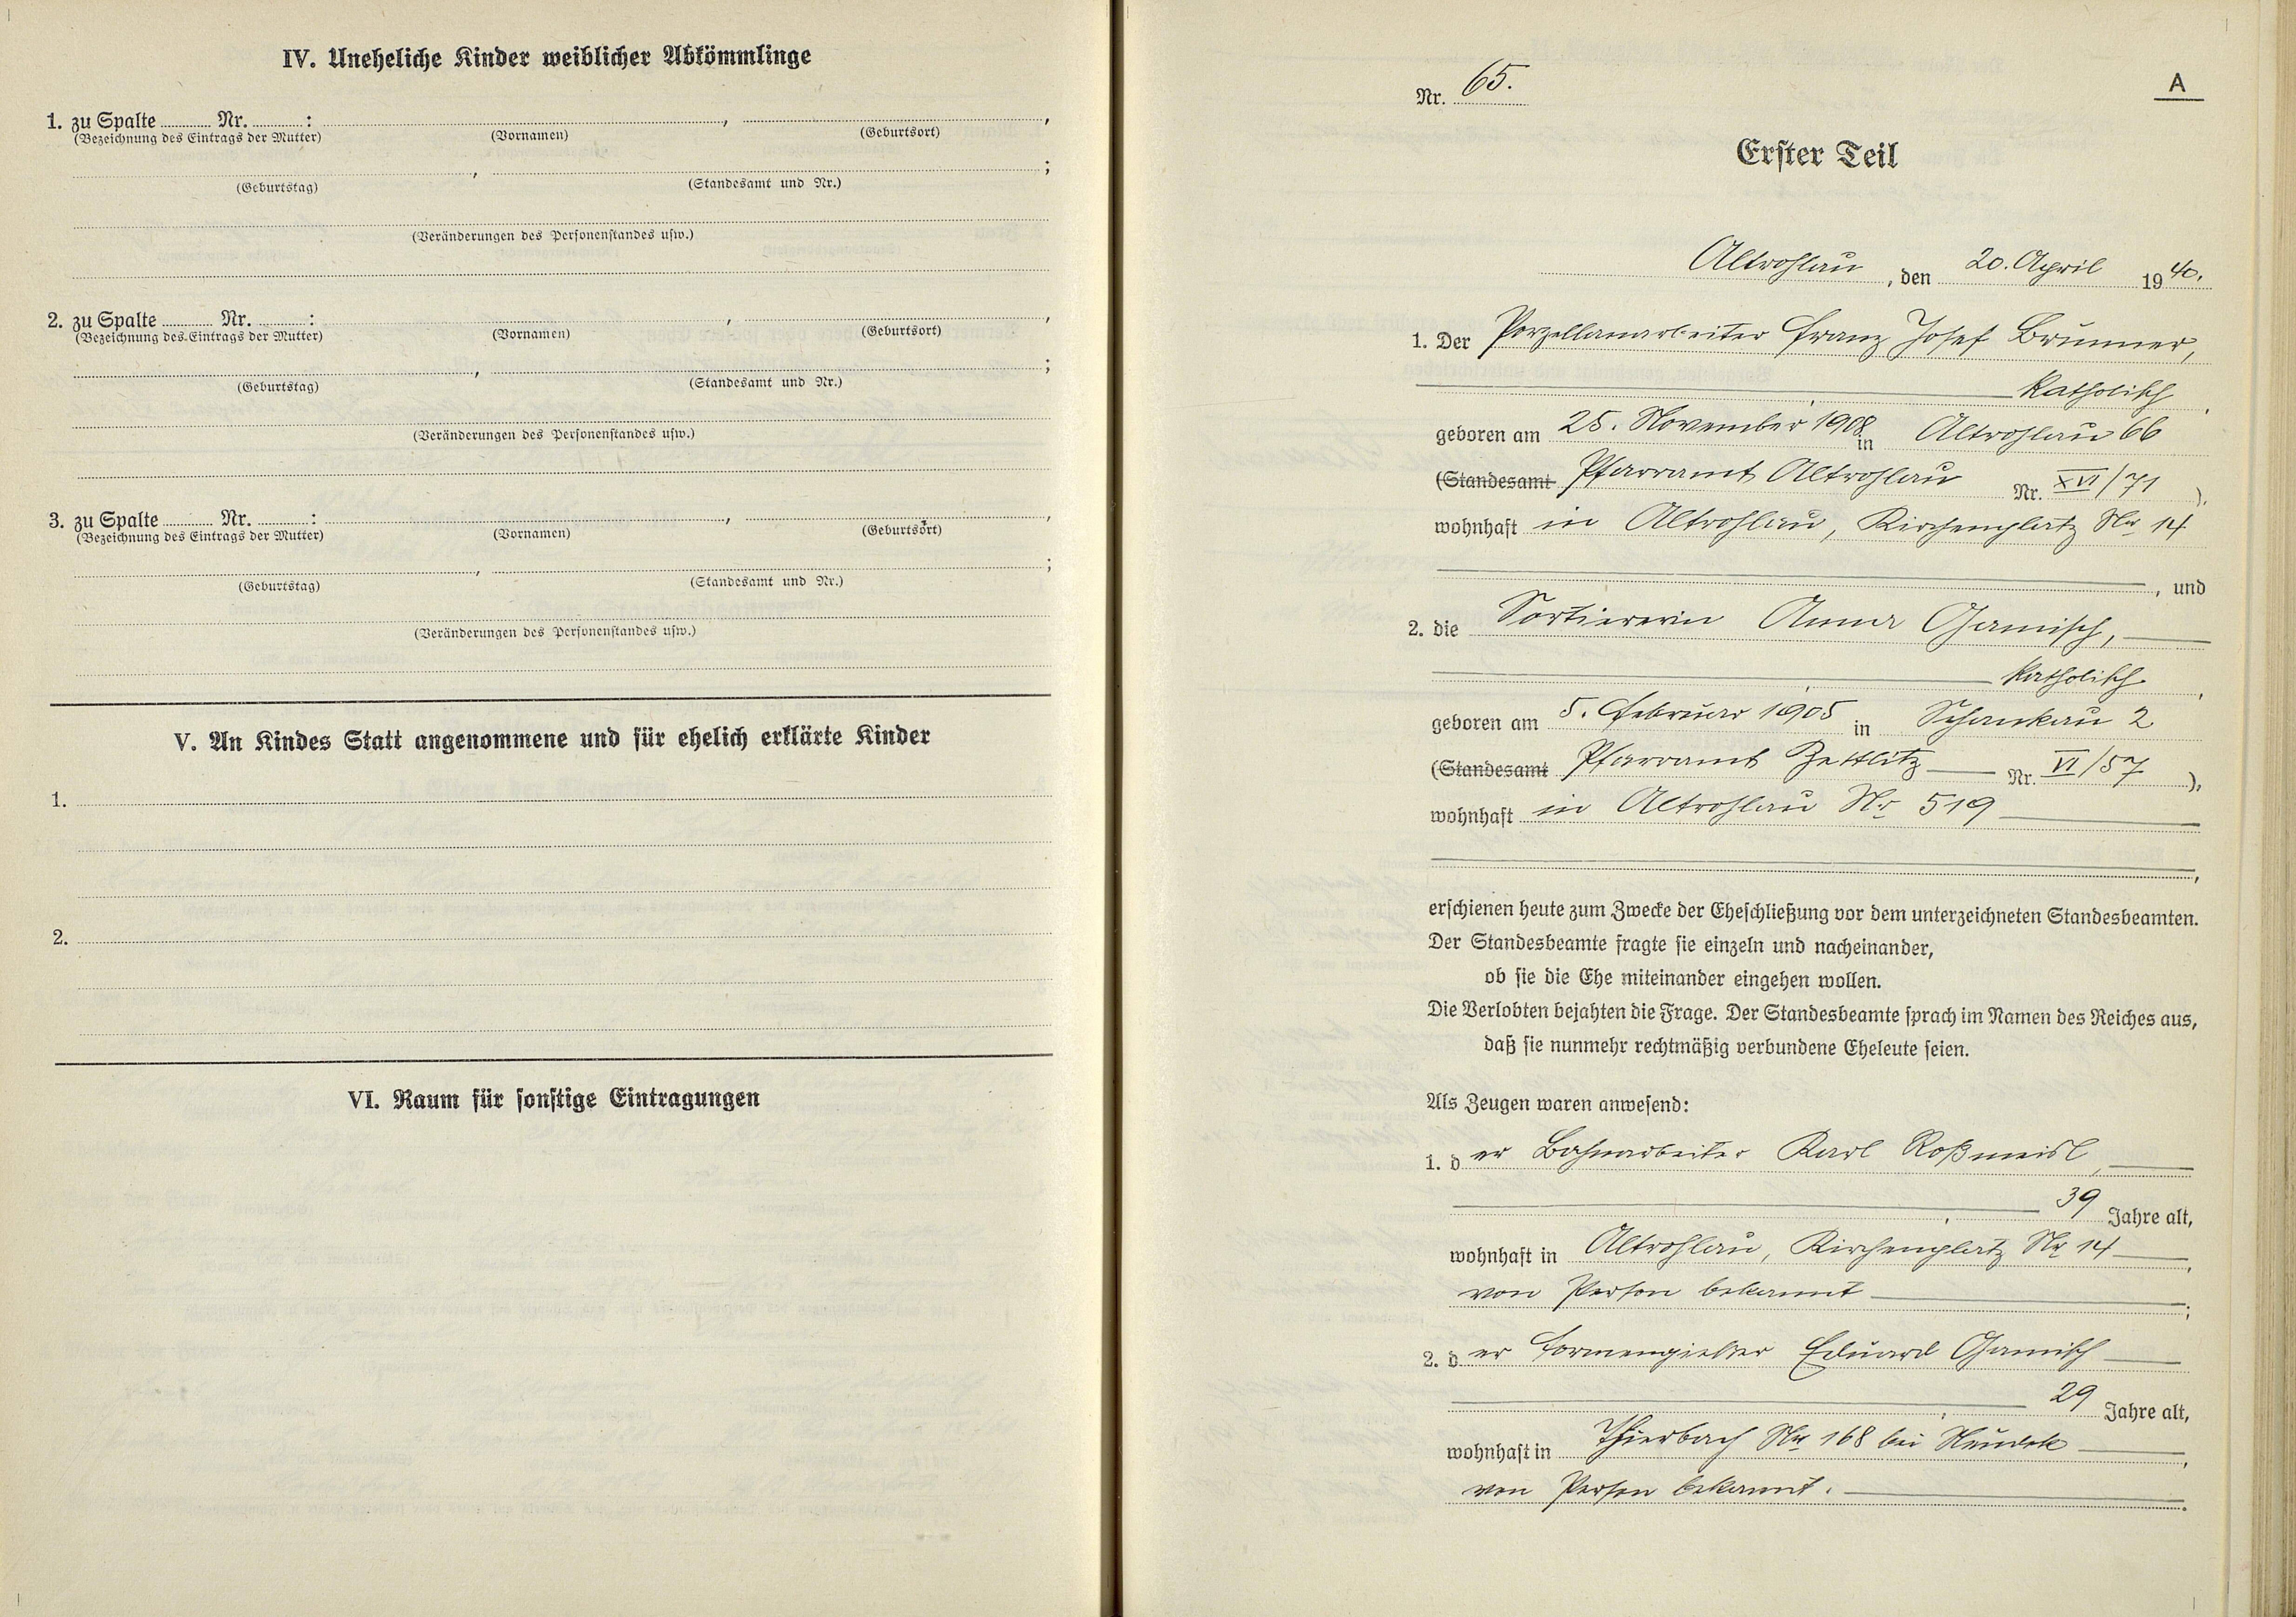 IV. Uneheliche Kinder weiblicher Abkömmlinge
1. zu Spalte ........ Nr. ........ : , ,
(Bezeichnung des Eintrags der Mutter) (Vornamen) (Geburtsort)
, ;
(Geburtstag) (Standesamt und Nr.)
(Veränderungen des Personenstandes usw.)
2. zu Spalte ........ Nr. ........ : , ,
(Bezeichnung des Eintrags der Mutter) (Vornamen) (Geburtsort)
, ;
(Geburtstag) (Standesamt und Nr.)
(Veränderungen des Personenstandes usw.)
3. zu Spalte ........ Nr. ........ : , ,
(Bezeichnung des Eintrags der Mutter) (Vornamen) (Geburtsort)
, ;
(Geburtstag) (Standesamt und Nr.)
(Veränderungen des Personenstandes usw.)
V. An Kindes Statt angenommene und für ehelich erklärte Kinder
1.
2.
VI. Raum für sonstige Eintragungen
Nr. 65.
A
Erster Teil
Altrohlau, den 20. April 1940.
1. Der Porzellanarbeiter Franz Josef Brunner,
katholisch,
geboren am 25. November 1908 in Altrohlau 66
(Standesamt Pfarramt Altrohlau Nr. XVI/71 ),
wohnhaft in Altrohlau, Kirchenplatz Nr 14
, und
2. die Sortiererin Anna Gamisch,
katholisch,
geboren am 5. Februar 1905 in Schankau 2
(Standesamt Pfarramt Zettlitz Nr. VI/57 ),
wohnhaft in Altrohlau Nr 519
,
erschienen heute zum Zwecke der Eheschließung vor dem unterzeichneten Standesbeamten.
Der Standesbeamte fragte sie einzeln und nacheinander,
ob sie die Ehe miteinander eingehen wollen.
Die Verlobten bejahten die Frage. Der Standesbeamte sprach im Namen des Reiches aus,
daß sie nunmehr rechtmäßig verbundene Eheleute seien.
Als Zeugen waren anwesend:
1. der Bahnarbeiter Karl Roßmeisl,
39 Jahre alt,
wohnhaft in Altrohlau, Kirchenplatz Nr 14,
von Person bekannt;
2. der Formengießer Eduard Gamisch
29 Jahre alt,
wohnhaft in Thierbach Nr 168 bei Neudek,
von Person bekannt.